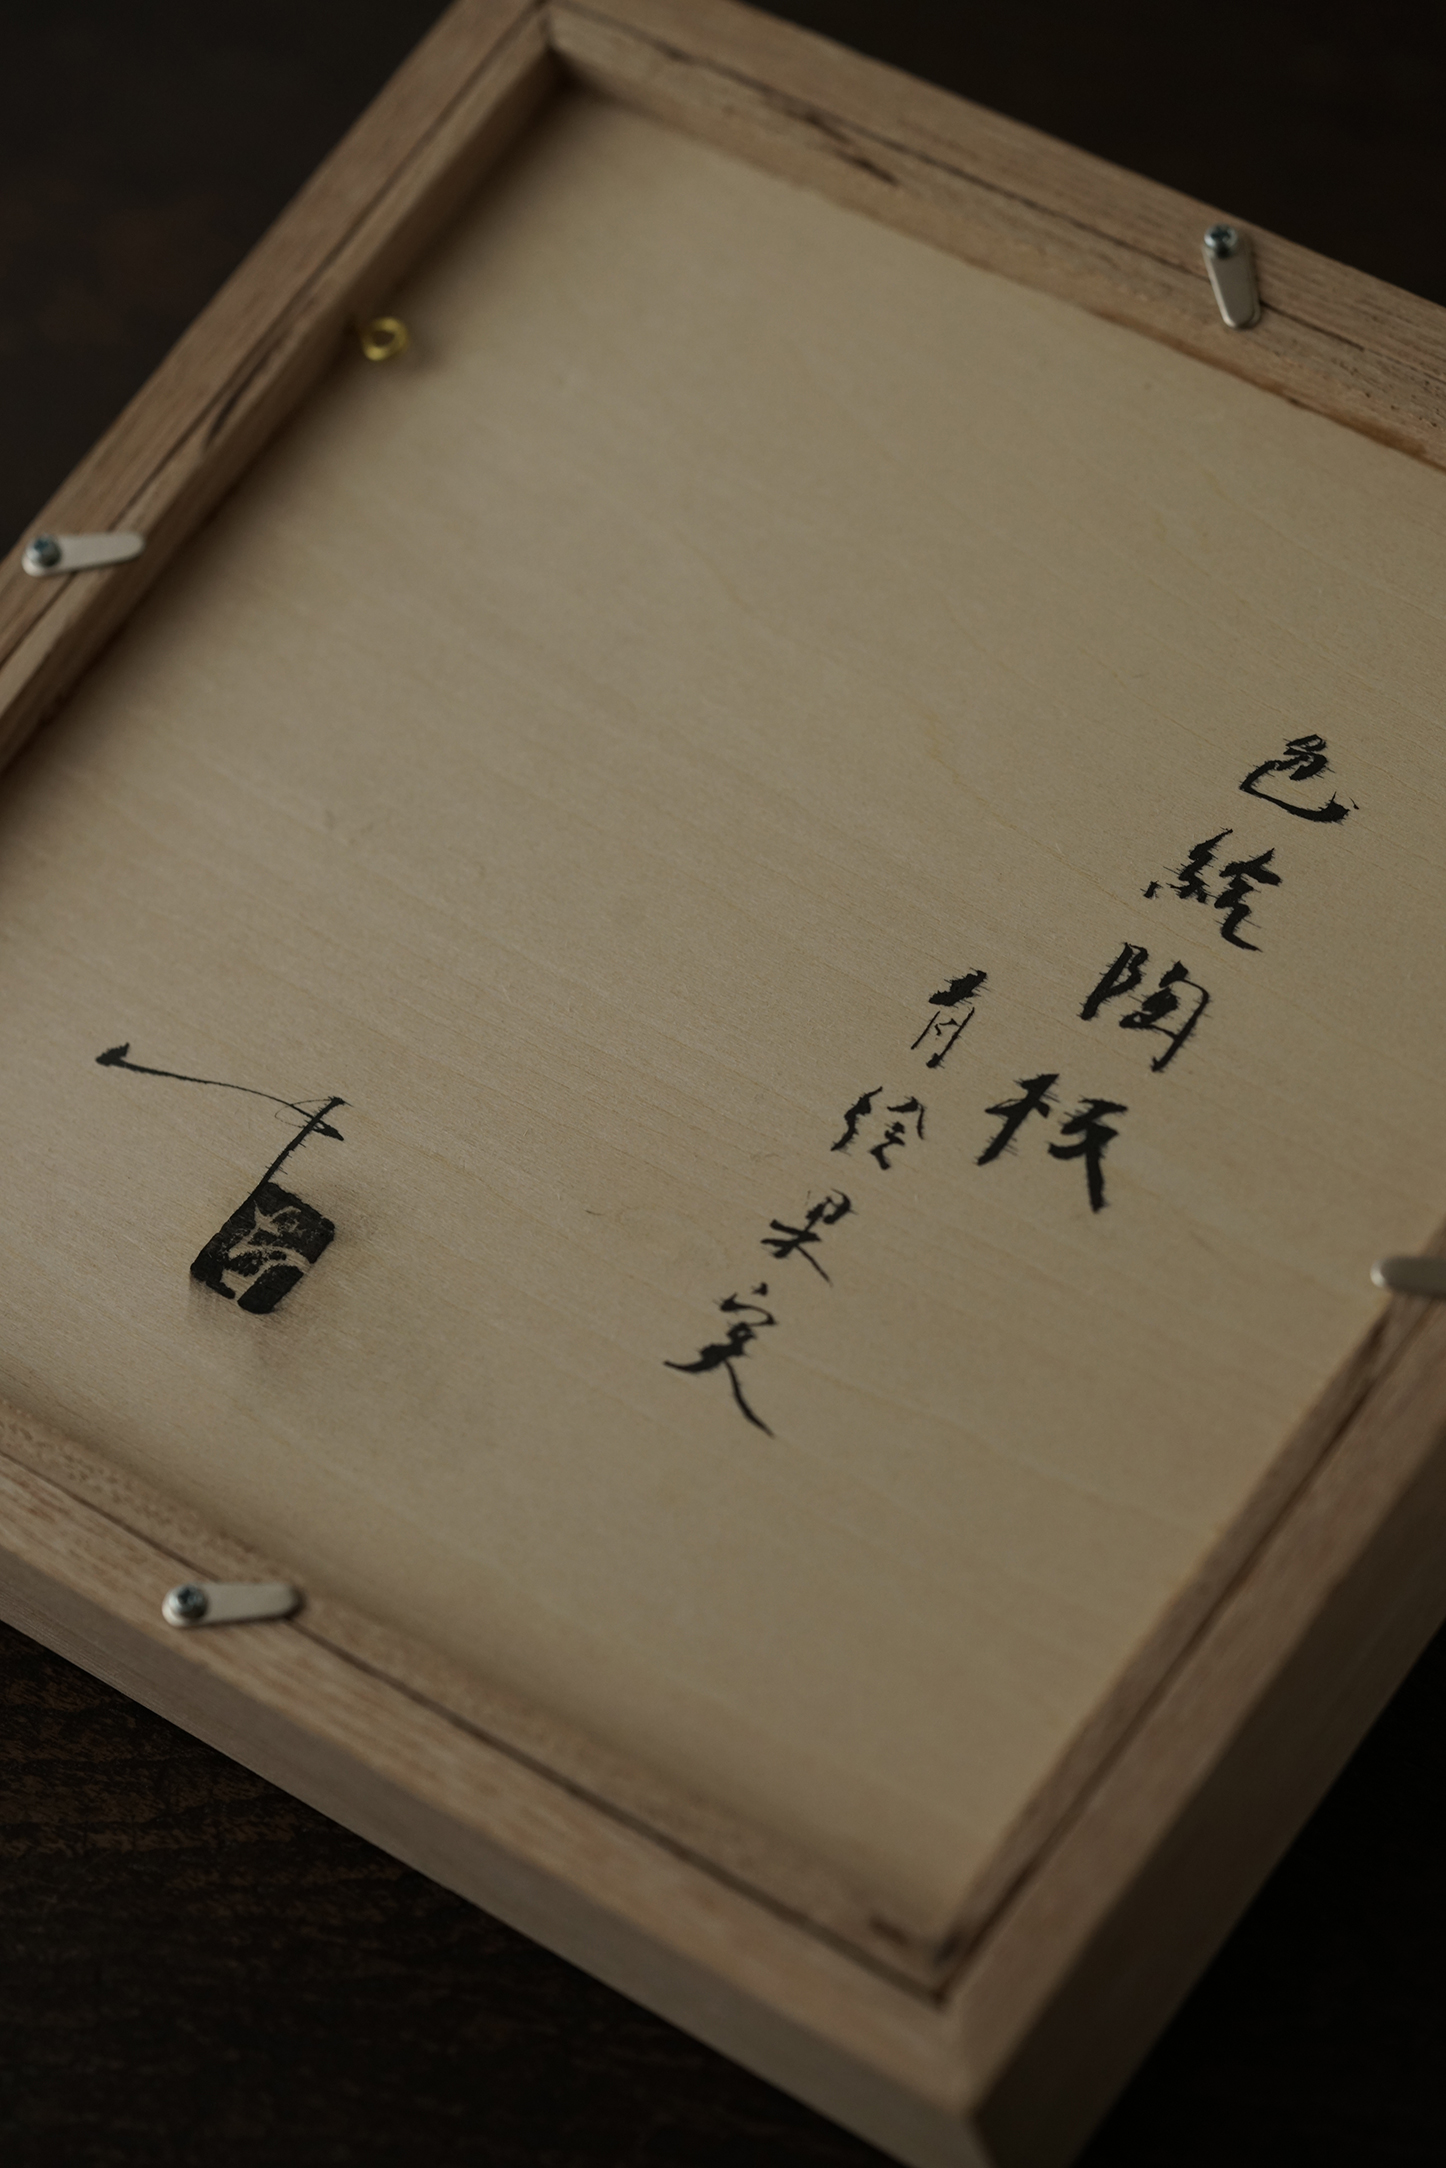 色絵陶板
青絵果実